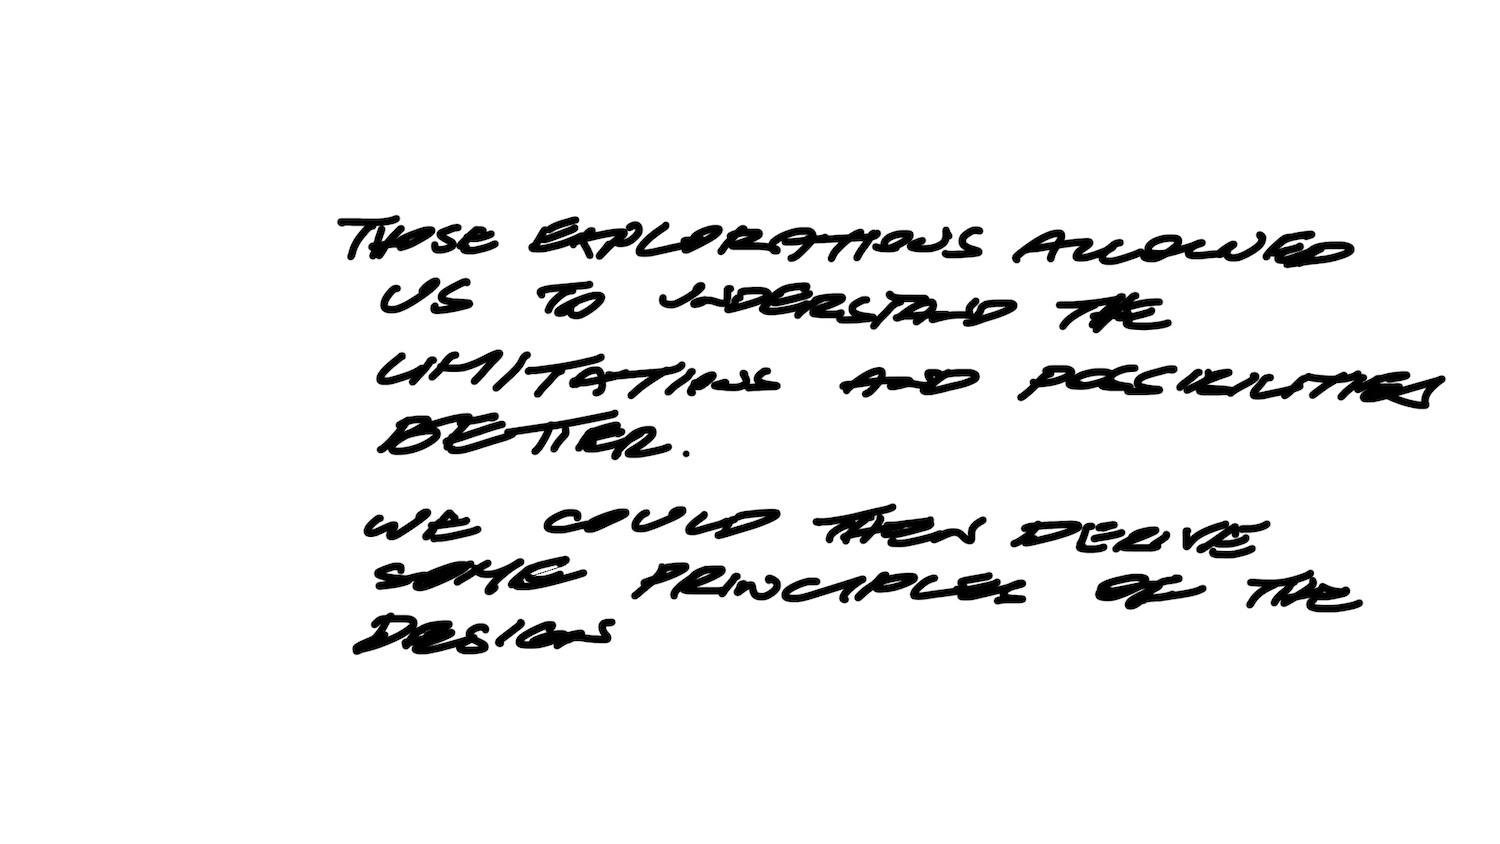 THOSE EXPLORATIONS ALLOWED
US TO UNDERSTAND THE
LIMITATIONS AND POSSIBILITIES
BETTER.
WE COULD THEN DERIVE
SOME PRINCIPLES OF THE
DESIGN